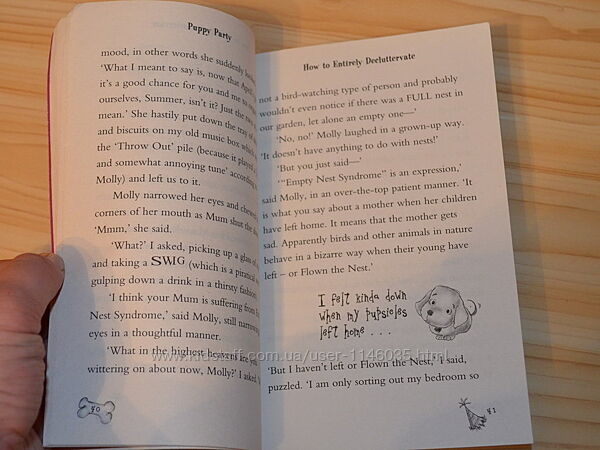 Puppy Party
mood, in other words she suddenly
'What I meant to say is, now that April
it's a good chance for you and me to
ourselves, Summer, isn't it? Just the two
mean.' She hastily put down the tray of
and biscuits on my old music box which
the 'Throw Out' pile (because it played a
and somewhat annoying tune' according
Molly) and left us to it.
Molly narrowed her eyes and chewed
corners of her mouth as Mum shut the
'Mmm,' she said.
'What?' I asked, picking up a glass of
and taking a SWIG (which is a piratical
gulping down a drink in a thirsty fashion
'I think your Mum is suffering from
Nest Syndrome,' said Molly, still narrowing
eyes in a thoughtful manner.
'What in the highest heavens are you
wittering on about now, Molly?' I asked.
40
How to Entirely Decluttervate
not a bird-watching type of person and probably
wouldn't even notice if there was a FULL nest in
our garden, let alone an empty one—'
'No, no!' Molly laughed in a grown-up way.
'It doesn't have anything to do with nests!'
'But you just said—'
'"Empty Nest Syndrome" is an expression,'
said Molly, in an over-the-top patient manner. 'It
is what you say about a mother when her children
have left home. It means that the mother gets
sad. Apparently birds and other animals in nature
behave in a bizarre way when their young have
left – or Flown the Nest.'
I felt kinda down
when my pupsicles
left home . . .
'But I haven't left or Flown the Nest,' I said,
puzzled. 'I am only sorting out my bedroom so
41
www.kidstaff.com.ua/user-1146035.html